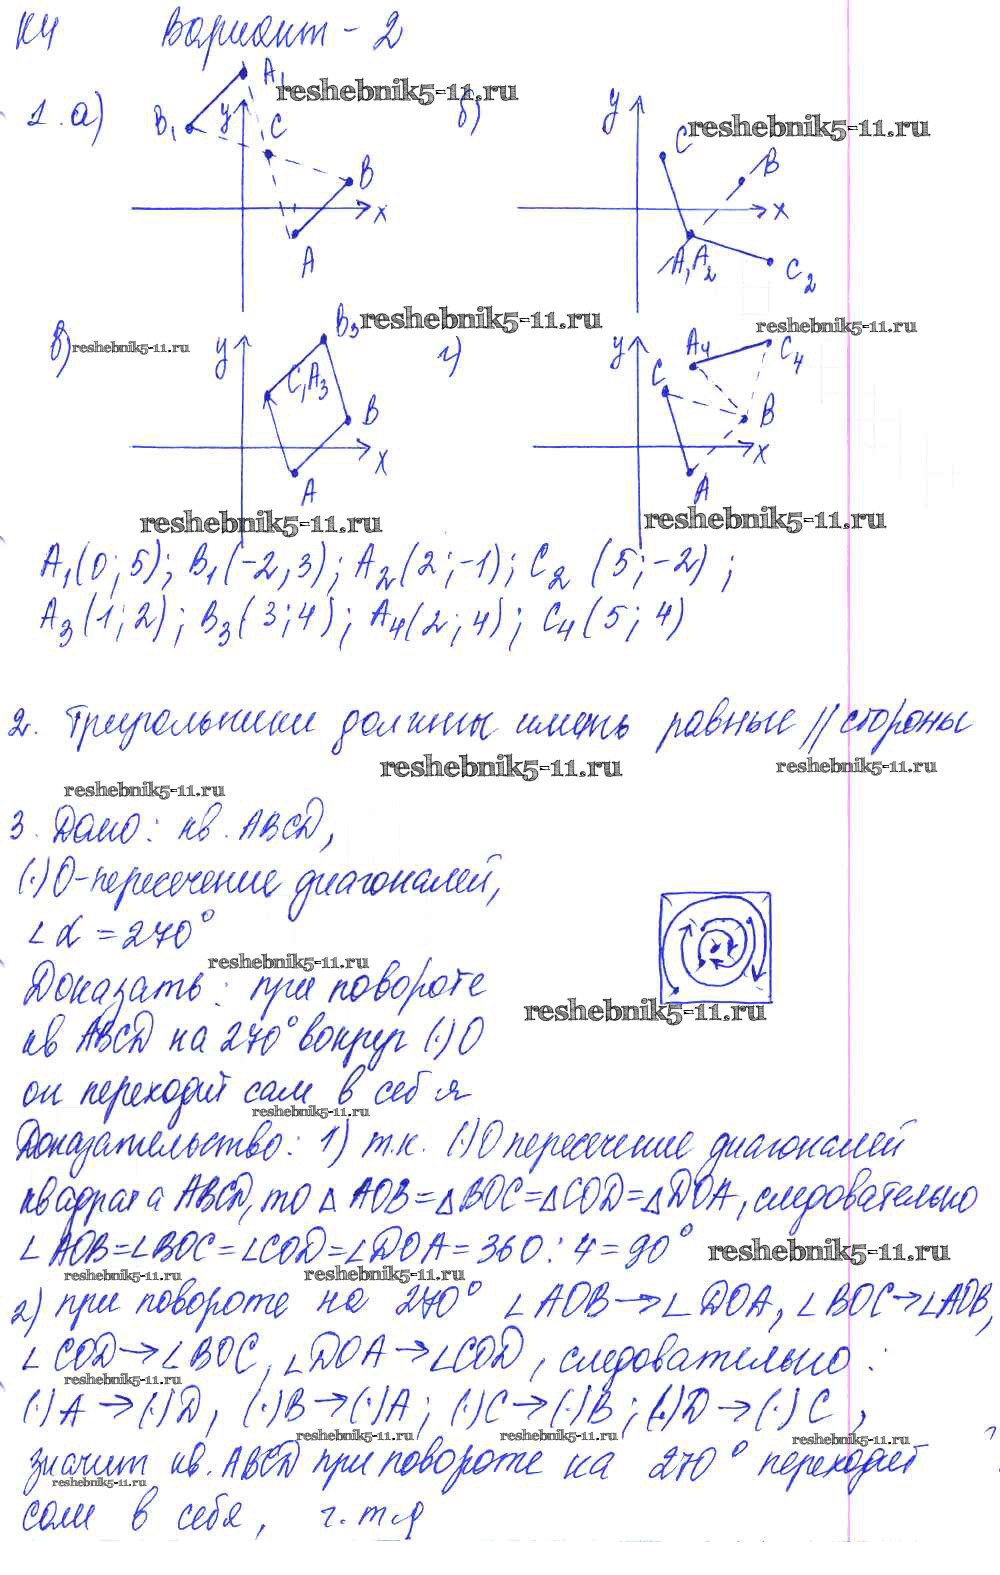 К4 Вариант - 2
1. а) A₁ reshebnik5-11.ru б)
B₁ y C B x A
y C reshebnik5-11.ru B x A, A₂ C₂
в) reshebnik5-11.ru y B₃ reshebnik5-11.ru C, A₃ B x A
г) y A₄ reshebnik5-11.ru C₄ C B x A
reshebnik5-11.ru reshebnik5-11.ru
A₁(0; 5); B₁(-2; 3); A₂(2; -1); C₂ (5; -2);
A₃(1; 2); B₃(3; 4); A₄(2; 4); C₄(5; 4)
2. Треугольники должны иметь равные // стороны
reshebnik5-11.ru reshebnik5-11.ru
reshebnik5-11.ru
3. Дано: кв. ABCD,
(·) O - пересечение диагоналей,
∠α = 270°
reshebnik5-11.ru
Доказать: при повороте
reshebnik5-11.ru
кв ABCD на 270° вокруг (·) O
он переходит сам в себя
reshebnik5-11.ru
Доказательство: 1) т.к. (·) O пересечение диагоналей
квадрата ABCD, то △ AOB = △ BOC = △ COD = △ DOA, следовательно
∠ AOB = ∠ BOC = ∠ COD = ∠ DOA = 360 : 4 = 90° reshebnik5-11.ru
reshebnik5-11.ru reshebnik5-11.ru
2) при повороте на 270° ∠ AOB → ∠ DOA, ∠ BOC → ∠ AOB,
∠ COD → ∠ BOC, ∠ DOA → ∠ COD, следовательно:
reshebnik5-11.ru
(·) A → (·) D, (·) B → (·) A; (·) C → (·) B; (·) D → (·) C,
reshebnik5-11.ru reshebnik5-11.ru reshebnik5-11.ru
значит кв. ABCD при повороте на 270° переходит
reshebnik5-11.ru
сам в себя, ч.т.д